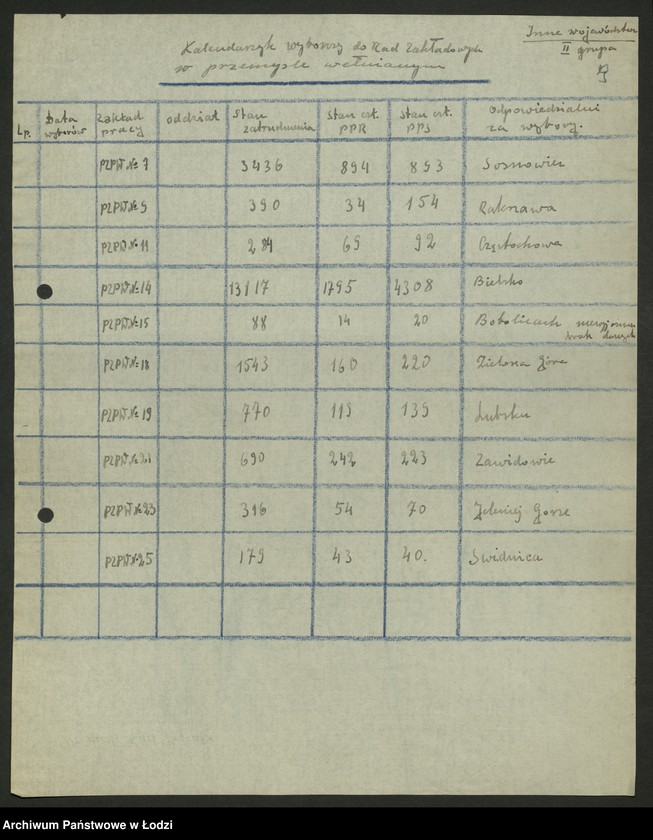 Inne województwa
II grupa
Kalendarzyk wyborczy do Rad Zakładowych
w przemyśle wełnianym
Lp. Data wyborów Zakład pracy oddział Stan zatrudnienia Stan czł. PPR Stan czł. PPS Odpowiedzialni za wybory.
PZPW № 7 3436 894 853 Sosnowiec
PZPW № 9 390 34 154 Rakszawa
PZPW № 11 284 69 92 Częstochowa
PZPW № 14 13117 1795 4308 Bielsko
PZPW № 15 88 14 20 Bobolicach brak danych
PZPW № 18 1543 160 220 Zielona Góra
PZPW № 19 770 119 139 Lubsku
PZPW № 21 690 242 223 Zawidowie
PZPW № 23 316 54 70 Jeleniej Górze
PZPW № 25 179 43 40. Świdnica
Archiwum Państwowe w Łodzi